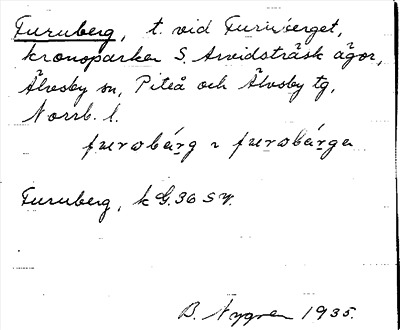 Furuberg, t. vid Furuberget,
kronoparken S. Arvidsträsk ägor,
Älvsby sn, Piteå och Älvsby tg,
Norrb. l.
furωbárg ɿ furωbárga
Furuberg, k G.36 SV.
B. Nygren 1935.